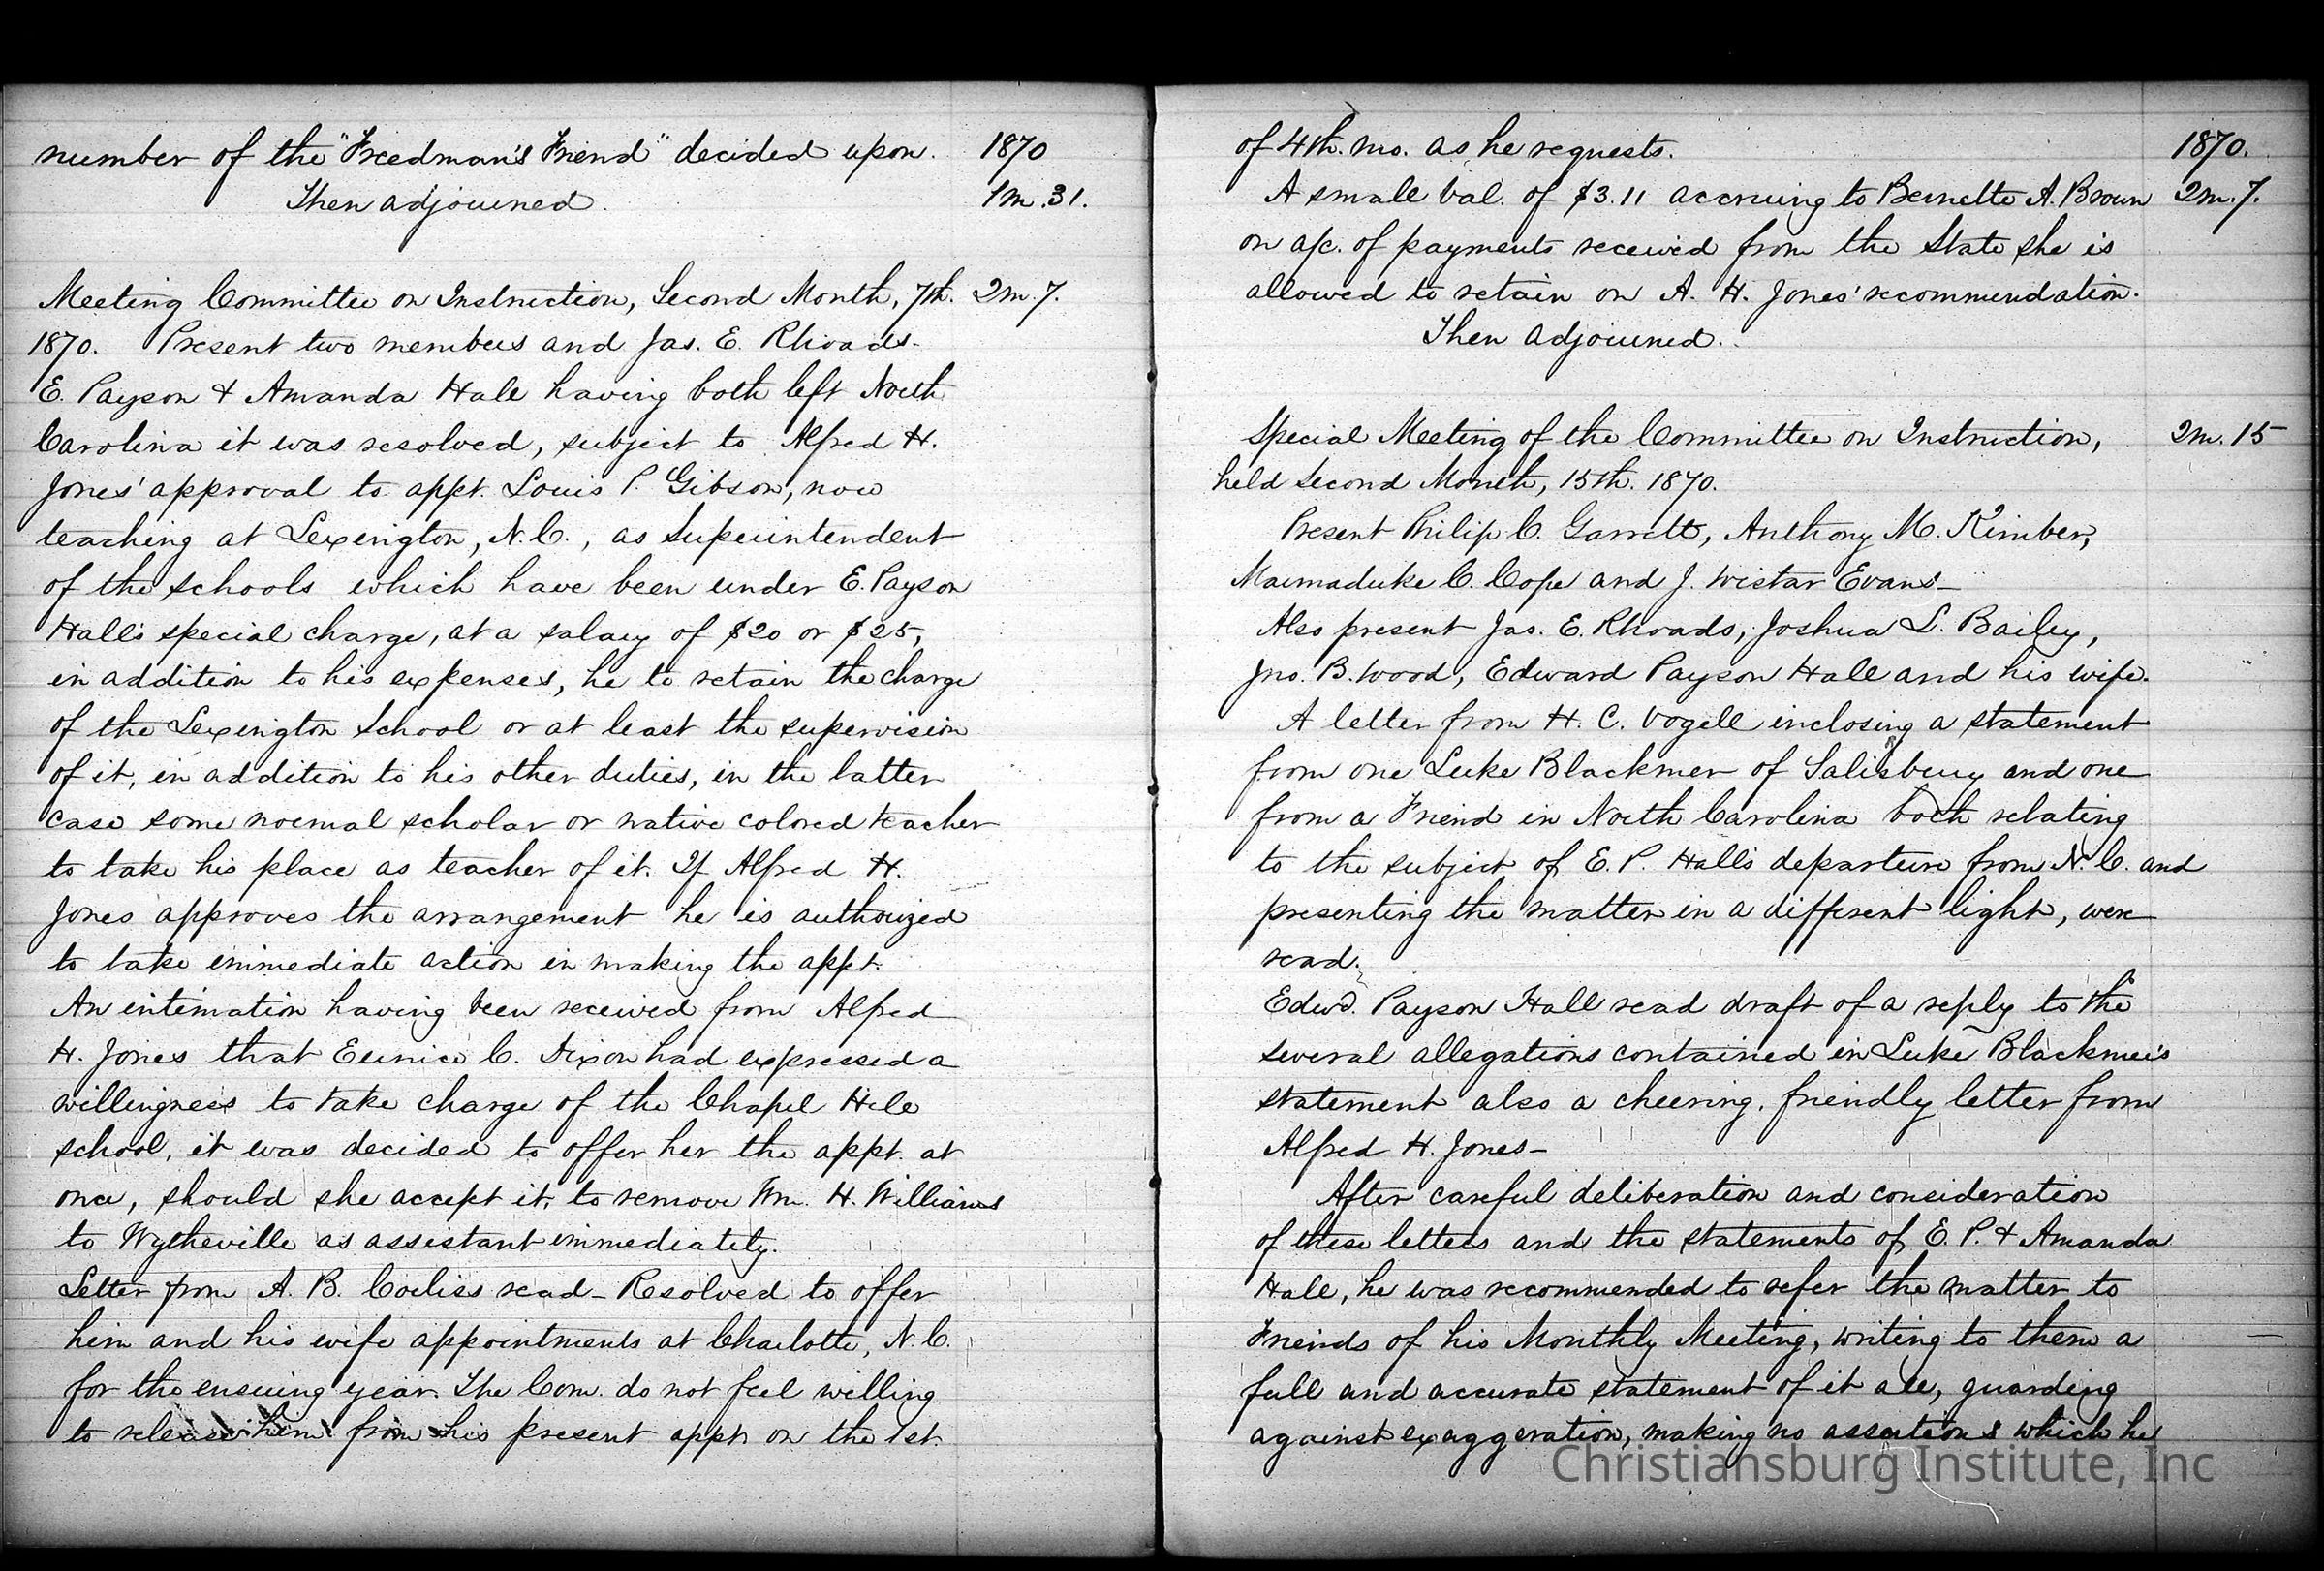 number of the "Freedman's Friend" decided upon. 1870
Then adjourned. 1m.31.
Meeting Committee on Instruction, Second Month, 7th. 2m.7.
1870. Present two members and Jas. E. Rhoads.
E. Payson & Amanda Hall having both left North
Carolina it was resolved, subject to Alfred H.
Jones' approval to appt. Louis P. Gibson, now
teaching at Lexington, N.C., as Superintendent
of the schools which have been under E. Payson
Hall's special charge, at a salary of $20 or $25,
in addition to his expenses, he to retain the charge
of the Lexington School or at least the supervision
of it, in addition to his other duties, in the latter
case some normal scholar or native colored teacher
to take his place as teacher of it. If Alfred H.
Jones approves the arrangement he is authorized
to take immediate action in making the appt.
An intimation having been received from Alfred
H. Jones that Eunice C. Dixon had expressed a
willingness to take charge of the Chapel Hill
school, it was decided to offer her the appt. at
once, should she accept it, to remove Wm. H. Williams
to Wytheville as assistant immediately.
Letter from A. B. Corliss read - Resolved to offer
him and his wife appointments at Charlotte, N.C.
for the ensuing year. The Com. do not feel willing
to release him from his present appt. on the 1st.
of 4th. mo. as he requests. 1870.
A small bal. of $3.11 accruing to Bernette A. Brown 2m.7.
on a/c. of payments received from the State she is
allowed to retain on A. H. Jones' recommendation.
Then adjourned.
Special Meeting of the Committee on Instruction, 2m.15
held Second Month, 15th. 1870.
Present Philip C. Garrett, Anthony M. Kimber,
Marmaduke C. Cope and J. Wistar Evans-
Also present Jas. E. Rhoads, Joshua L. Bailey,
Jno. B. Wood, Edward Payson Hall and his wife.
A letter from H. C. Vogell inclosing a statement
from one Luke Blackmer of Salisbury and one
from a Friend in North Carolina both relating
to the subject of E. P. Hall's departure from N.C. and
presenting the matter in a different light, were
read.
Edwd. Payson Hall read draft of a reply to the
several allegations contained in Luke Blackmer's
statement also a cheering, friendly letter from
Alfred H. Jones-
After careful deliberation and consideration
of these letters and the statements of E. P. & Amanda
Hall, he was recommended to refer the matter to
Friends of his Monthly Meeting, writing to them a
full and accurate statement of it all, guarding
against exaggeration, making no assertions which he
Christiansburg Institute, Inc